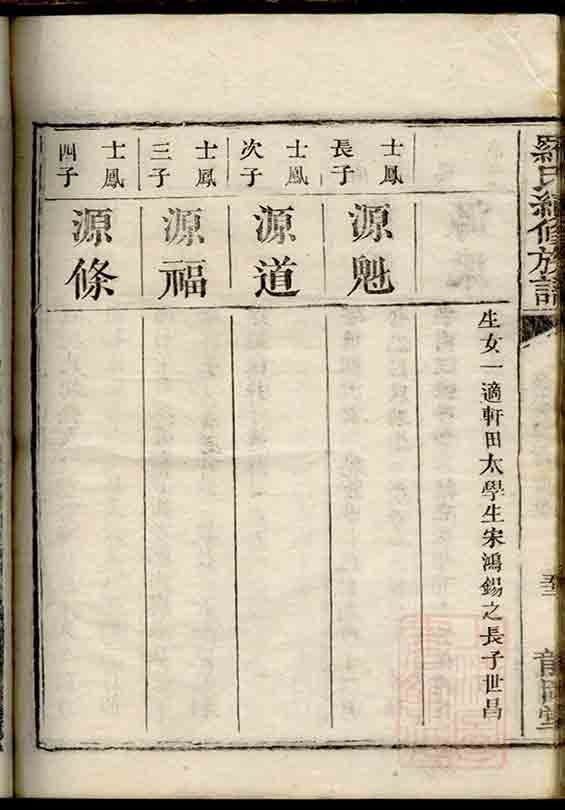 羅氏續修族譜
生女一適軒田太學生宋鴻錫之長子世昌
士鳳
長子
源魁
士鳳
次子
源道
士鳳
三子
源福
士鳳
四子
源條